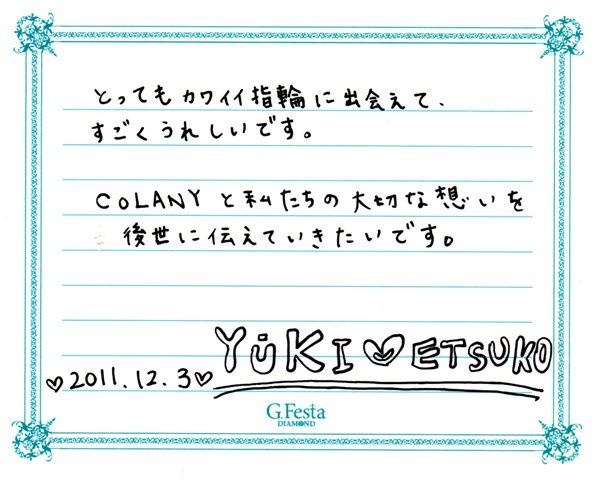 とってもカワイイ指輪に出会えて、
すごくうれしいです。
COLANYと私たちの大切な想いを
後世に伝えていきたいです。
YUKI♡ETSUKO
♡2011.12.3♡
G.Festa
DIAMOND